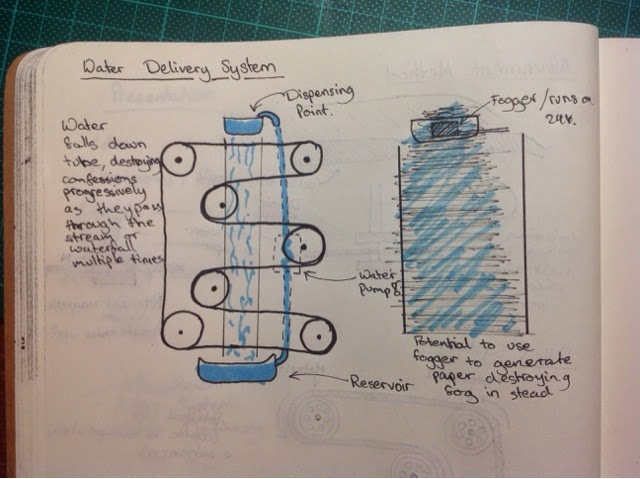 Water Delivery System
Dispensing
Point.
Fogger/runs on
24v.
Water
falls down
tube, destroying
confessions
progressively
as they pass
through the
stream or
waterfall
multiple times
Water
Pump
Reservoir
Potential to use
fogger to generate
paper destroying
fog in stead